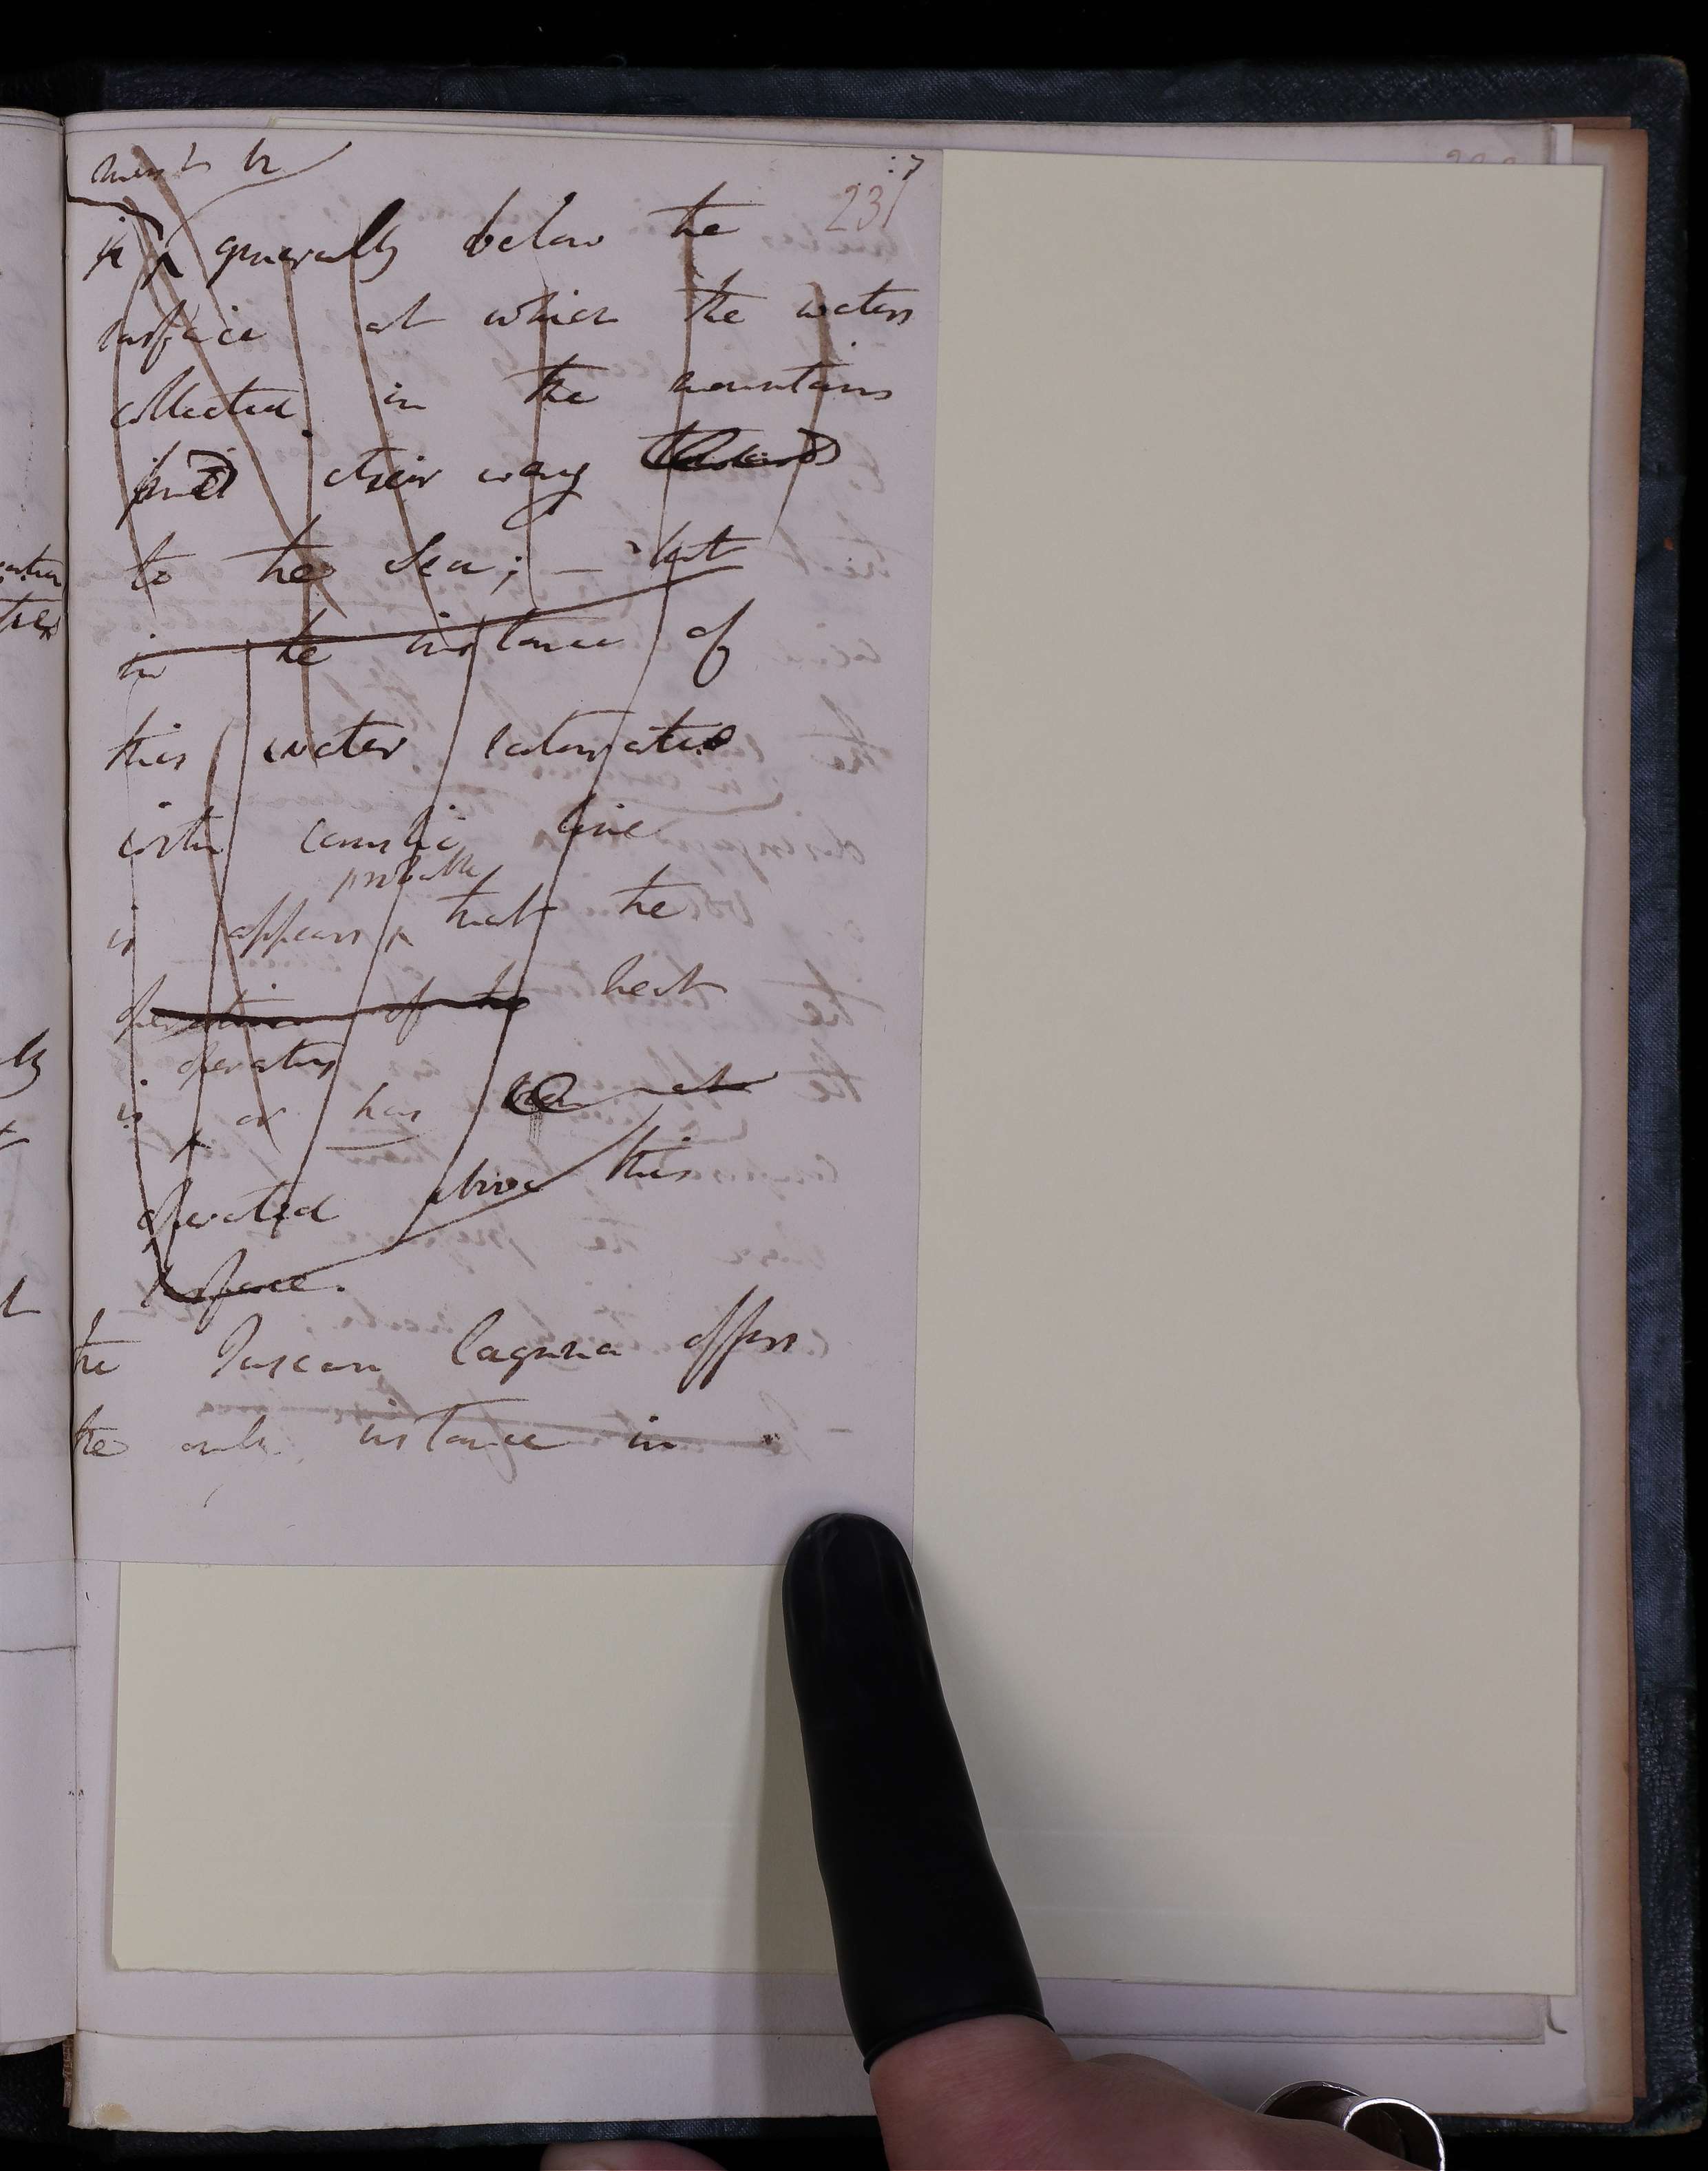 must be
:7
231
is generally below the
surface at which the waters
collected in the mountains
find their way
to the Sea; – but
in the instance of
this water saturated
with caustic lime
probable
it appears that the
operation of the heat
operating
is or has
operated above this
surface.
the Tuscan laguna offers
the only instance in